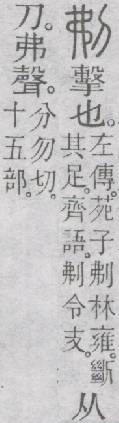 刜擊也。左傳。苑子刜林雍。斷其足。齊語。刜令支。从
刀。弗聲。分勿切。十五部。